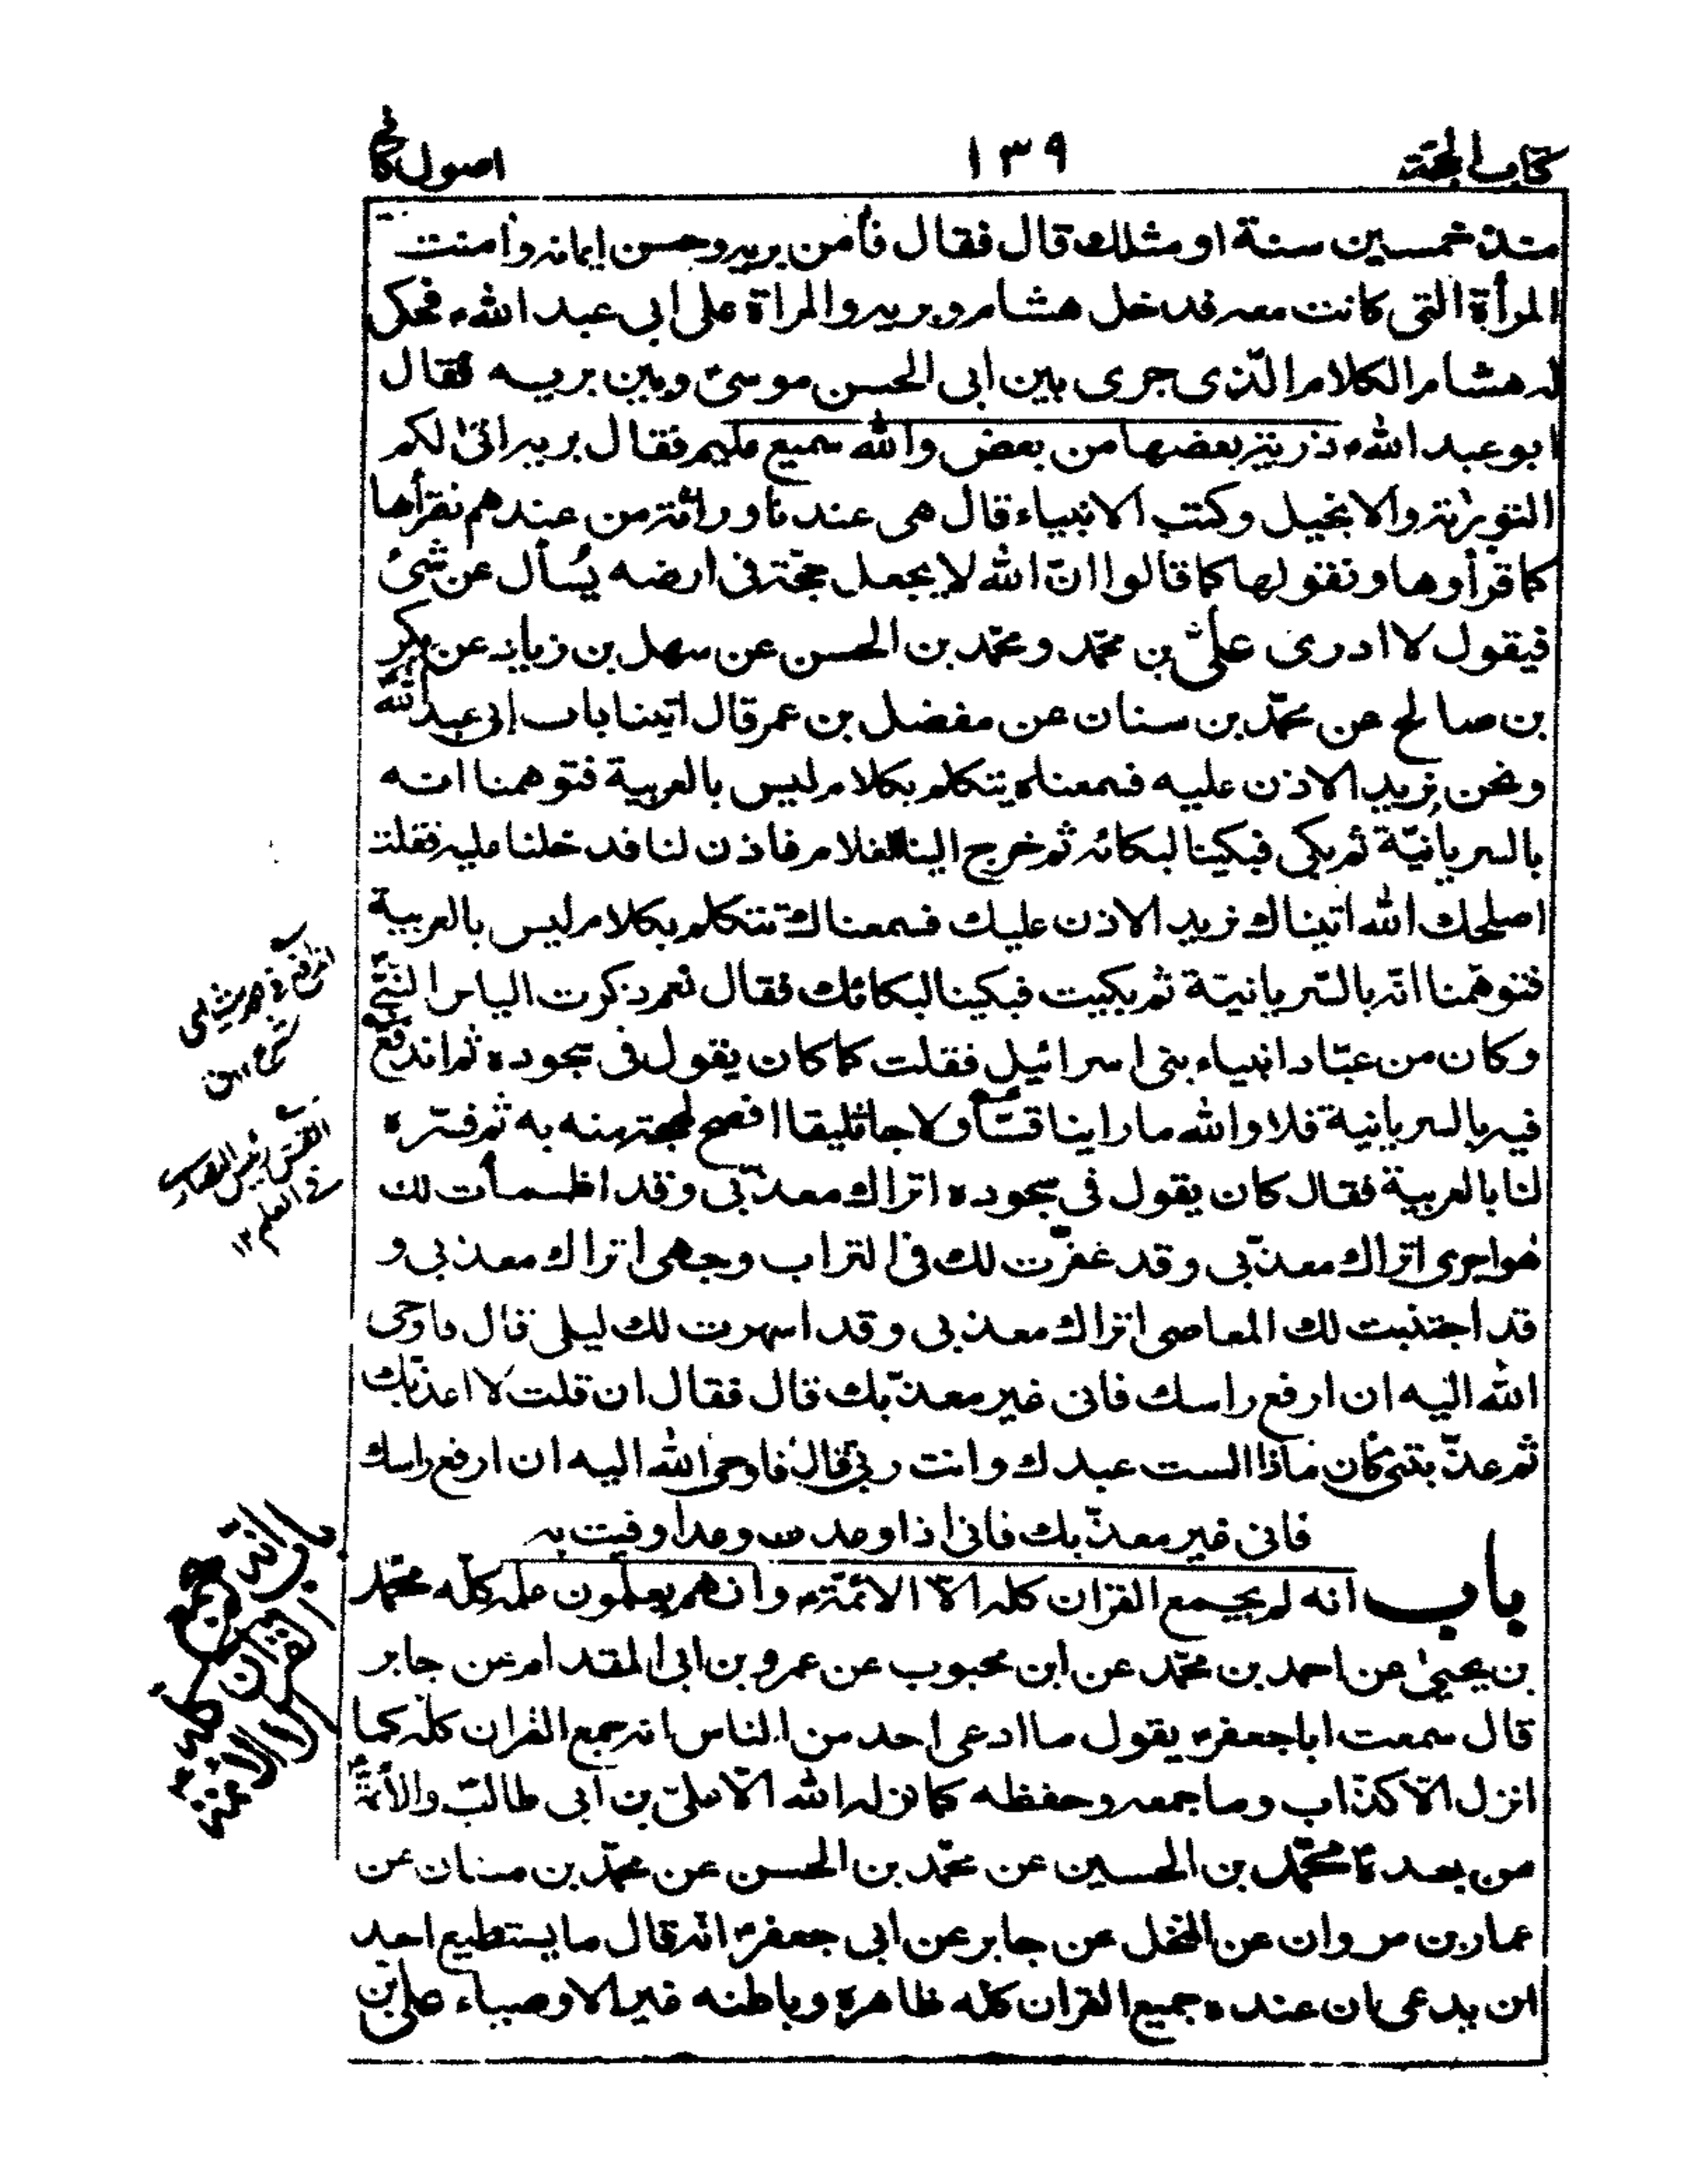 كتاب الحجة
١٣٩
اصول كافى
منذ خمسين سنة او مثلك قال فقال فأمن بريه وحسن إيمانه وامنت
المرأة التى كانت معه فدخل هشام وبريه والمرأة على ابى عبد الله ع فحكى
له هشام الكلام الذى جرى بين ابى الحسن موسى ع وبين بريه فقال
ابو عبد الله ع ذرية بعضها من بعض والله سميع عليم فقال بريه انى لكم
التورٰية والانجيل وكتب الانبياء قال هى عندنا وراثة من عندهم نقرأها
كما قرأوها ونقولها كما قالوا انّ الله لا يجعل حجّة فى ارضه يُسأل عن شئ
فيقول لا ادرى علىّ بن محمّد ومحمّد بن الحسن عن سهل بن زياد عن بكر
بن صالح عن محمّد بن سنان عن مفضل بن عمر قال اتينا باب ابى عبد الله
ونحن نريد الاذن عليه فسمعناه يتكلم بكلام ليس بالعربية فتوهمنا انه
بالسريانيّة ثم بكى فبكينا لبكائه ثم خرج الينا الغلام فاذن لنا فدخلنا عليه فقلت
اصلحك الله اتيناك نريد الاذن عليك فسمعناك تتكلم بكلام ليس بالعربية
فتوهّمنا انّه بالسّريانيّة ثم بكيت فبكينا لبكائك فقال نعم ذكرت الياس النبىّ
وكان من عبّاد انبياء بنى اسرائيل فقلت كما كان يقول فى سجوده ثم اندفع
فيه بالسريانية فلا والله ما راينا قسّا ولا جاثليقا افصح لهجة منه به ثم فسّره
لنا بالعربية فقال كان يقول فى سجوده اتراك معذّبى وقد اظمأت لك
هواجرى اتراك معذّبى وقد عفّرت لك فى التراب وجهى اتراك معذبى و
قد اجتنبت لك المعاصى اتراك معذبى وقد اسهرت لك ليلى قال فاوحى
الله اليه ان ارفع راسك فانى غير معذّبك قال فقال ان قلت لا اعذّبك
ثم عذّبتنى كان ماذا الست عبدك وانت ربى قال فاوحى الله اليه ان ارفع راسك
فانى غير معذّبك فانى اذا وعدت وعدا وفيت به
باب انه لم يجمع القران كله الاّ الائمّة ع وانهم يعلمون علمه كلّه محمّد
بن يحيىٰ عن احمد بن محمّد عن ابن محبوب عن عمرو بن ابى المقدام عن جابر
قال سمعت ابا جعفر ع يقول ما ادعى احد من الناس انه جمع القران كله كما
انزل الاّ كذّاب وما جمعه وحفظه كما نزله الله الاّ علىّ بن ابى طالب ع والأئمّة
من بعده ع محمّد بن الحسين عن محمّد بن الحسن عن محمّد بن سنان عن
عمار بن مروان عن المنخل عن جابر عن ابى جعفر ع انّه قال ما يستطيع احد
ان يدعى ان عنده جميع القران كله ظاهره وباطنه غير الاوصياء على بن
القس رئيس النصارى
فى العلم ١٢
باب انه لم يجمع
القران كله
الا الائمة ع